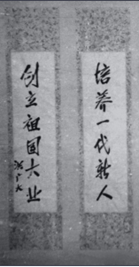 培养一代新人
创立祖国大业